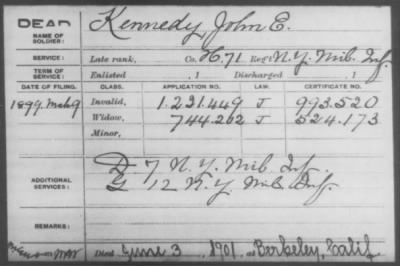 DEAD
NAME OF SOLDIER: Kennedy, John E.
SERVICE: Late rank, Co. H. 71 Reg't N.Y. Mil. Inf.
TERM OF SERVICE: Enlisted , 1 Discharged , 1
DATE OF FILING. CLASS. APPLICATION NO. LAW. CERTIFICATE NO.
1899 Mch 9 Invalid, 1.221.449 J 993.520
Widow, 744.202 J 524.173
Minor,
ADDITIONAL SERVICES: D. 7 N.Y. Mil. Inf.
G 12 N.Y. Mil. Inf.
REMARKS:
Died June 3, 1901, at Berkeley, Calif.